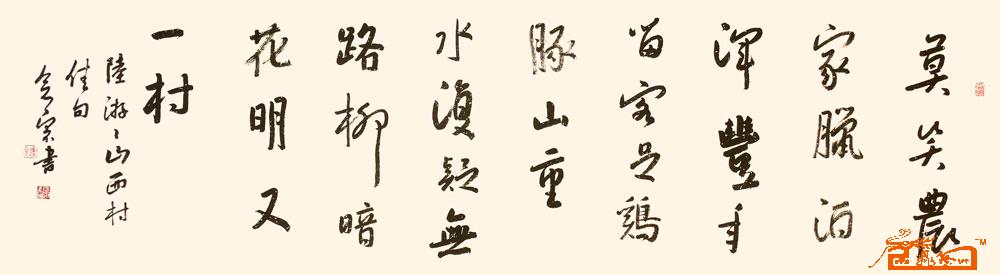 莫笑農
家臘酒
渾豐年
留客足鷄
豚山重
水復疑無
路柳暗
花明又
一村
陸游游山西村
佳句